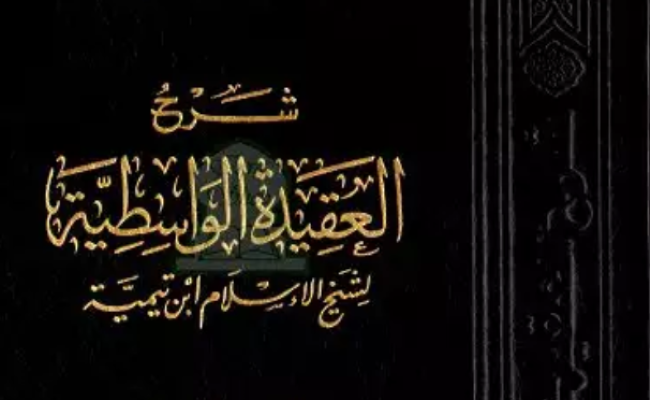 شَرْحُ
العَقِيْدَةِ الوَاسِطِيَّةِ
لِشَيْخِ الإِسْلَامِ ابْنِ تَيْمِيَّة